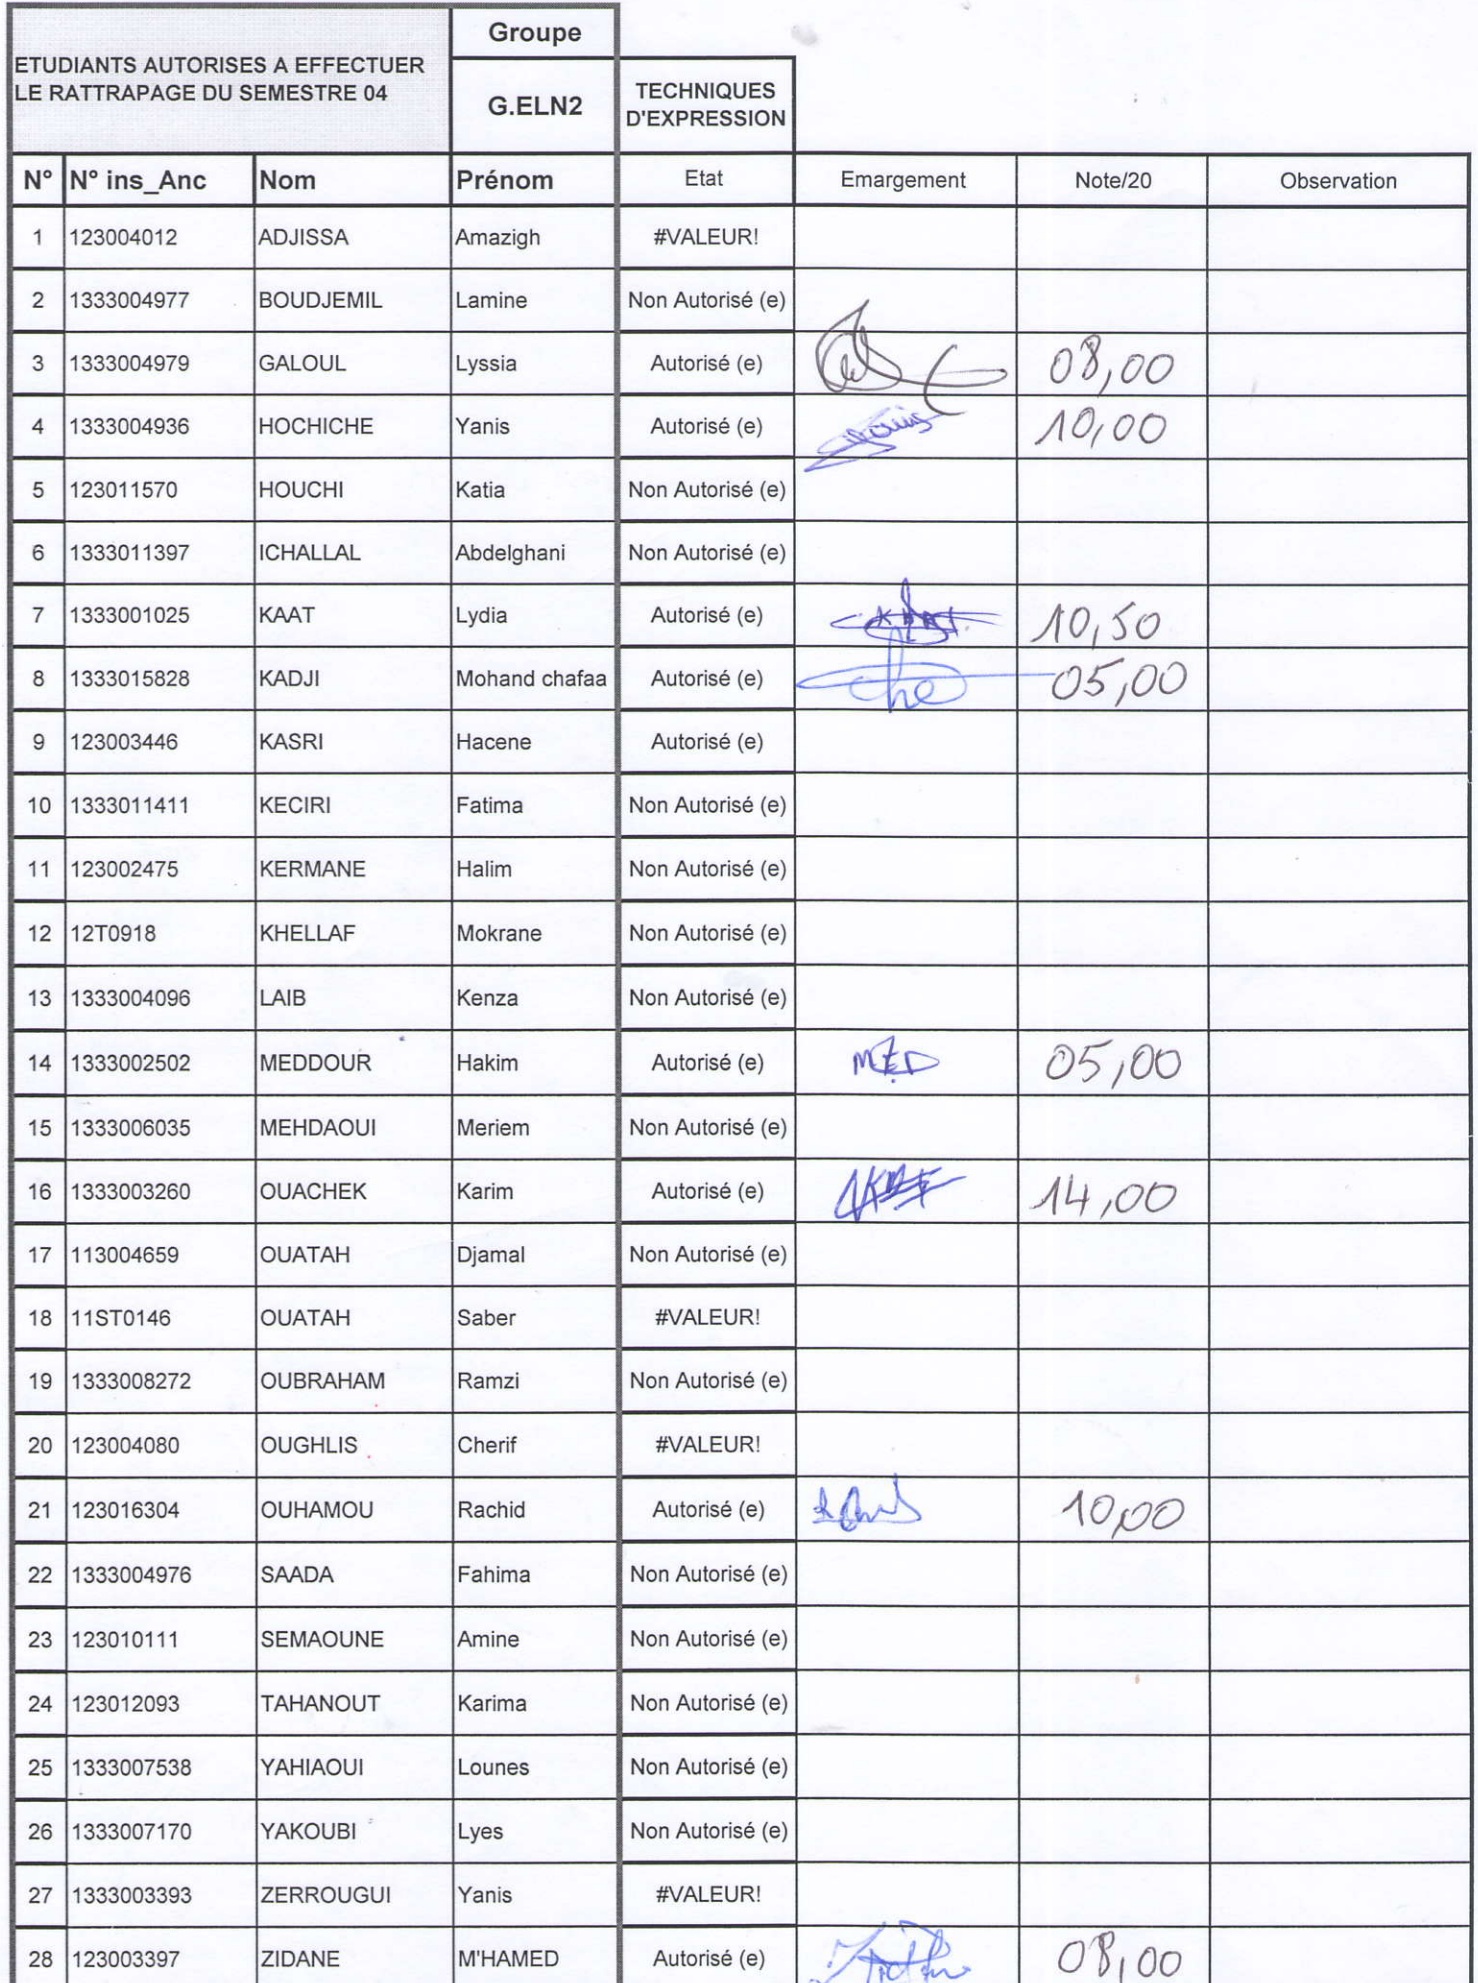 Groupe
ETUDIANTS AUTORISES A EFFECTUER
LE RATTRAPAGE DU SEMESTRE 04
G.ELN2
TECHNIQUES
D'EXPRESSION
N° N° ins_Anc Nom Prénom Etat Emargement Note/20 Observation
1 123004012 ADJISSA Amazigh #VALEUR!
2 1333004977 BOUDJEMIL Lamine Non Autorisé (e)
3 1333004979 GALOUL Lyssia Autorisé (e) 08,00
4 1333004936 HOCHICHE Yanis Autorisé (e) 10,00
5 123011570 HOUCHI Katia Non Autorisé (e)
6 1333011397 ICHALLAL Abdelghani Non Autorisé (e)
7 1333001025 KAAT Lydia Autorisé (e) 10,50
8 1333015828 KADJI Mohand chafaa Autorisé (e) 05,00
9 123003446 KASRI Hacene Autorisé (e)
10 1333011411 KECIRI Fatima Non Autorisé (e)
11 123002475 KERMANE Halim Non Autorisé (e)
12 12T0918 KHELLAF Mokrane Non Autorisé (e)
13 1333004096 LAIB Kenza Non Autorisé (e)
14 1333002502 MEDDOUR Hakim Autorisé (e) MED 05,00
15 1333006035 MEHDAOUI Meriem Non Autorisé (e)
16 1333003260 OUACHEK Karim Autorisé (e) 14,00
17 113004659 OUATAH Djamal Non Autorisé (e)
18 11ST0146 OUATAH Saber #VALEUR!
19 1333008272 OUBRAHAM Ramzi Non Autorisé (e)
20 123004080 OUGHLIS Cherif #VALEUR!
21 123016304 OUHAMOU Rachid Autorisé (e) 10,00
22 1333004976 SAADA Fahima Non Autorisé (e)
23 123010111 SEMAOUNE Amine Non Autorisé (e)
24 123012093 TAHANOUT Karima Non Autorisé (e)
25 1333007538 YAHIAOUI Lounes Non Autorisé (e)
26 1333007170 YAKOUBI Lyes Non Autorisé (e)
27 1333003393 ZERROUGUI Yanis #VALEUR!
28 123003397 ZIDANE M'HAMED Autorisé (e) 08,00